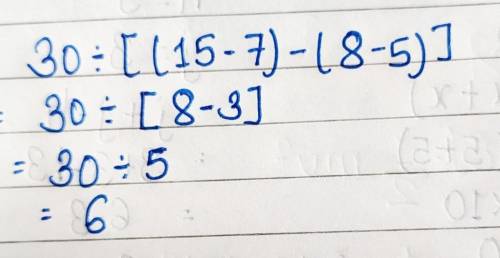 30 ÷ [(15-7)-(8-5)]
= 30 ÷ [8-3]
= 30 ÷ 5
= 6